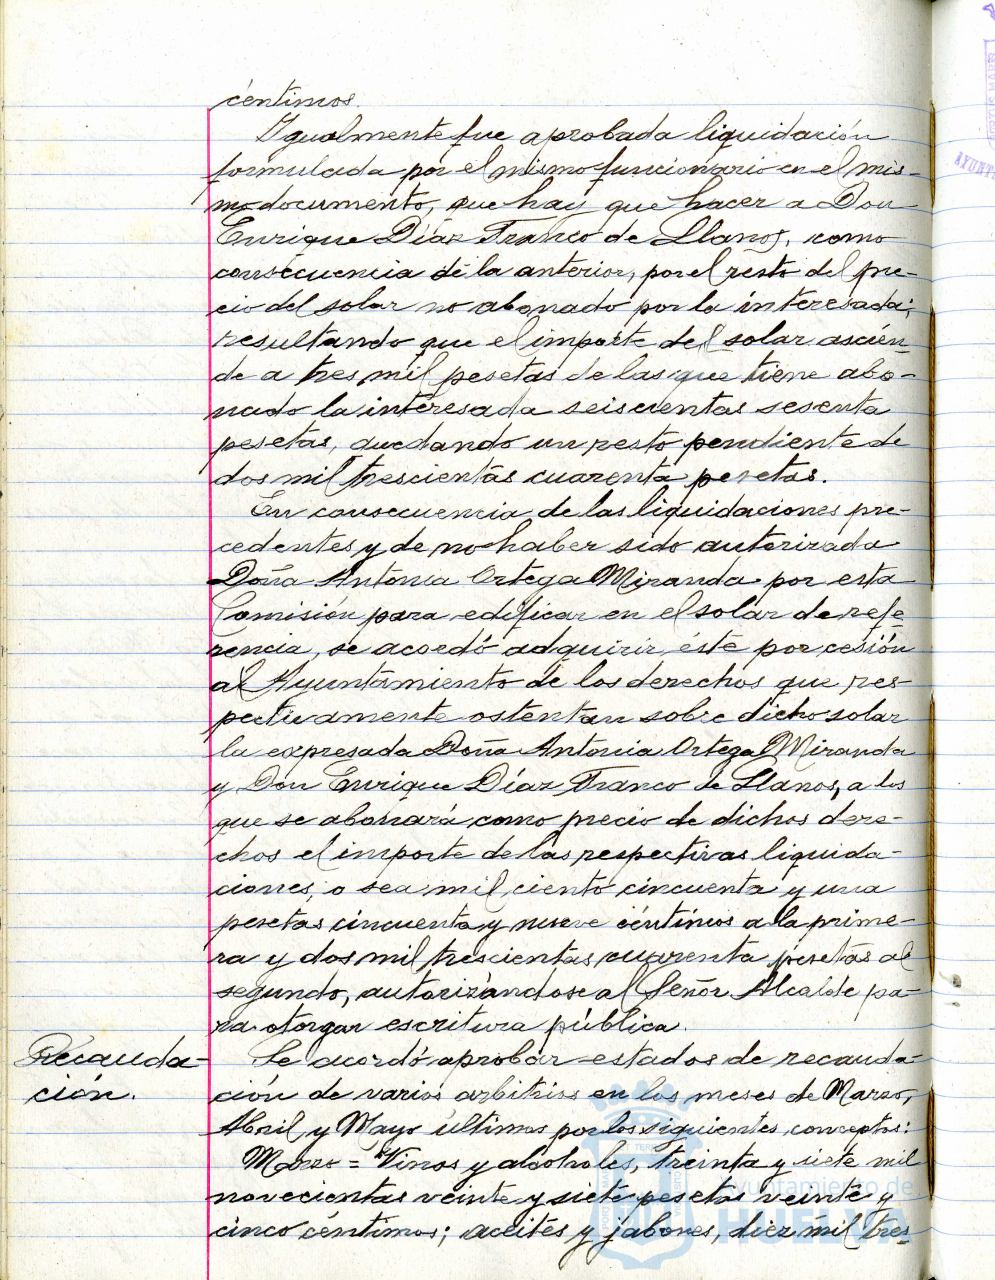 céntimos.
Igualmente fue aprobada liquidación
formulada por el mismo funcionario en el mis-
mo documento, que hay que hacer a Don
Enrique Díaz Franco de Llanos, como
consecuencia de la anterior, por el resto del pre-
cio del solar no abonado por la interesada;
resultando que el importe del solar ascien-
de a tres mil pesetas de las que tiene abo-
nado la interesada seiscientas sesenta
pesetas, quedando un resto pendiente de
dos mil trescientas cuarenta pesetas.
En consecuencia de las liquidaciones pre-
cedentes y de no haber sido autorizada
Doña Antonia Ortega Miranda por esta
Comisión para edificar en el solar de refe-
rencia, se acordó adquirir éste por cesión
al Ayuntamiento de los derechos que res-
pectivamente ostentan sobre dicho solar
la expresada Doña Antonia Ortega Miranda
y Don Enrique Díaz Franco de Llanos, a los
que se abonará como precio de dichos dere-
chos el importe de las respectivas liquida-
ciones, o sea mil ciento cincuenta y una
pesetas cincuenta y nueve céntimos a la prime-
ra y dos mil trescientas cuarenta pesetas al
segundo, autorizándose al Señor Alcalde pa-
ra otorgar escritura pública.
Recauda-
ción.
Se acordó aprobar estados de recauda-
ción de varios arbitrios en los meses de Marzo,
Abril y Mayo últimos por los siguientes conceptos:
Marzo = Vinos y alcoholes, treinta y siete mil
novecientas veinte y siete pesetas veinte y
cinco céntimos; aceites y jabones, diez mil tres-
Ayuntamiento de
HUELVA